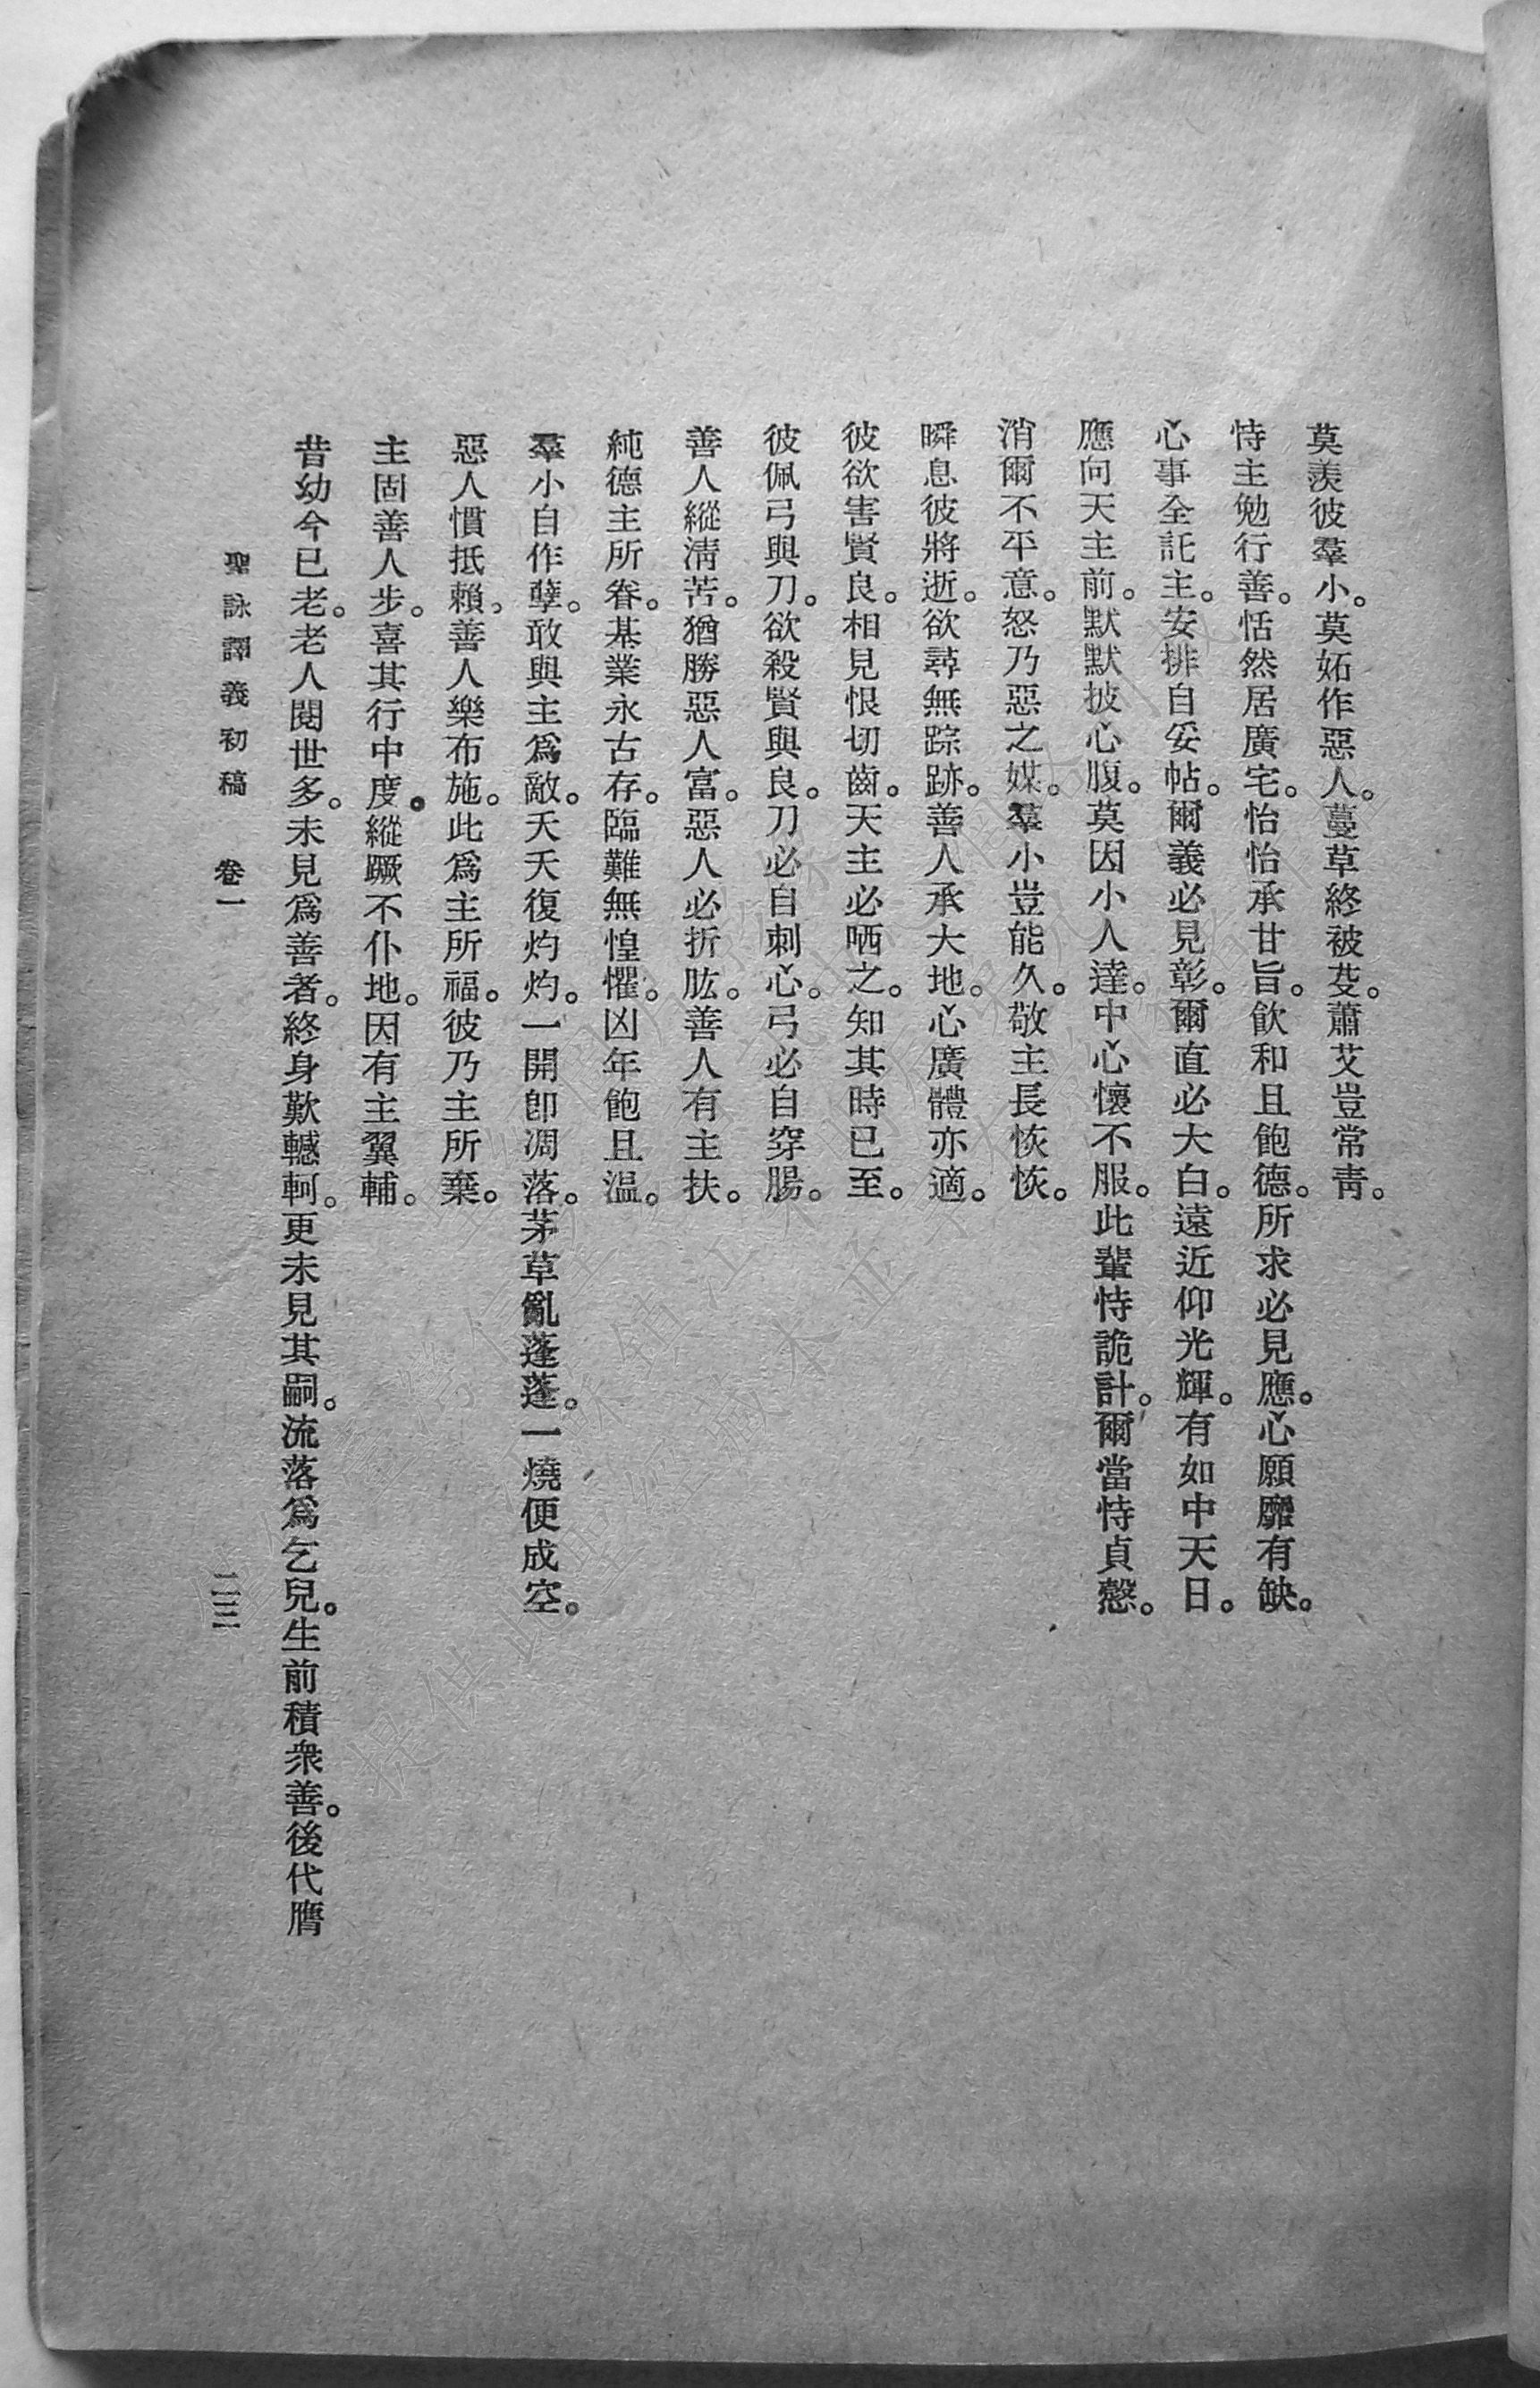 莫羨彼羣小。莫妬作惡人。蔓草終被芟。蕭艾豈常靑。
恃主勉行善。恬然居廣宅。怡怡承甘旨。飮和且飽德。所求必見應。心願靡有缺。
心事全託主。安排自妥帖。爾義必見彰。爾直必大白。遠近仰光輝。有如中天日。
應向天主前。默默披心腹。莫因小人達。中心懷不服。此輩恃詭計。爾當恃貞慤。
消爾不平意。怒乃惡之媒。羣小豈能久。敬主長恢恢。
瞬息彼將逝。欲尋無踪跡。善人承大地。心廣體亦適。
彼欲害賢良。相見恨切齒。天主必哂之。知其時已至。
彼佩弓與刀。欲殺賢與良。刀必自刺心。弓必自穿腸。
善人縱淸苦。猶勝惡人富。惡人必折肱。善人有主扶。
純德主所眷。基業永古存。臨難無惶懼。凶年飽且溫。
羣小自作孽。敢與主爲敵。夭夭復灼灼。一開卽凋落。茅草亂蓬蓬。一燒便成空。
惡人慣抵賴。善人樂布施。此爲主所福。彼乃主所棄。
主固善人步。喜其行中度。縱蹶不仆地。因有主翼輔。
昔幼今已老。老人閱世多。未見爲善者。終身歎轗軻。更未見其嗣。流落爲乞兒。生前積衆善。後代膺
聖詠譯義初稿 卷一 二三